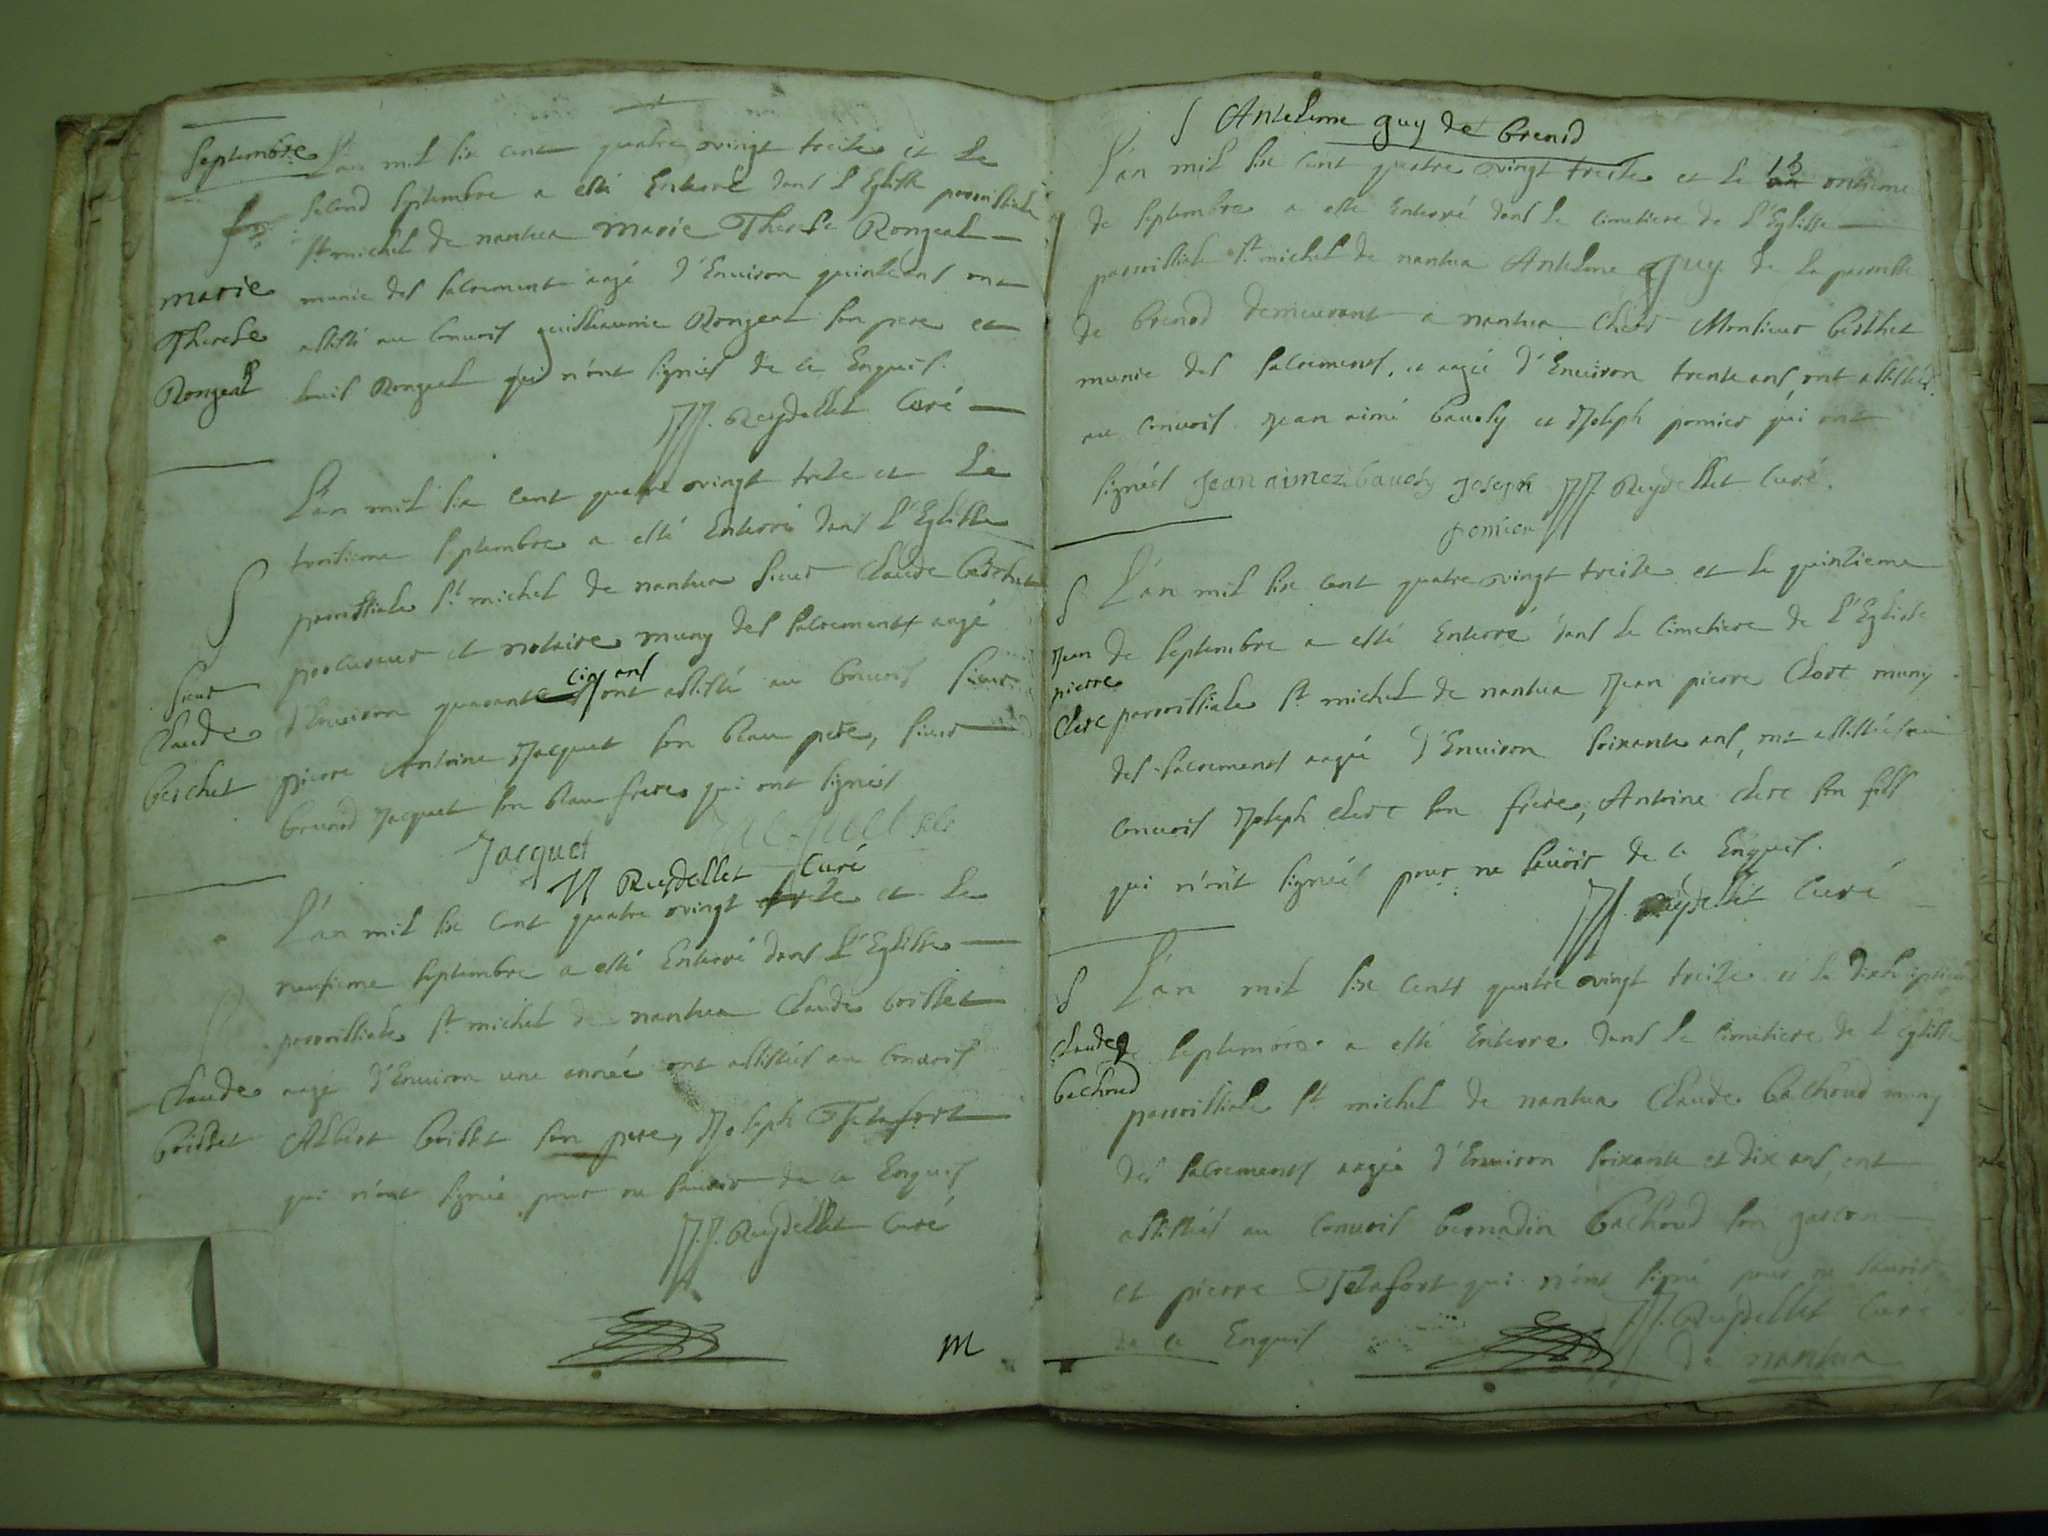 Septembre
L'an mil six cent quatre vingt treize et le
second septembre a esté Enterré dans l'Eglisse parroissiale
st michel de nantua marie Therese Rongeat
munie des sacrement aagé d'Enuiron quinze ans ont
assisté au conuois guilliaume Rongeat son pere et
Louis Rongeat qui n'ont signés de ce Enquis.
marie
Therese
Rongeat
JJ. Reydellet Curé
L'an mil six cent quatre vingt treze et Le
troisieme septembre a esté Enterré dans L'Eglisse
parroissiale st michel de nantua sieur Claude berchet
procureur et notaire muny des sacrements aagé
d'Enuiron quarante cinq ans ont assisté au conuois sieur
pierre Antoine Jacquet son beau pere, sieur
brunod Jacquet son beau frere qui ont signés
sieur
Claude
berchet
Jacquet Jacquet
JJ Reydellet Curé
L'an mil six cent quatre vingt treize et Le
neufieme septembre a esté Enterré dans L'Eglisse
parroissiale st michel de nantua Claude brisset
aagé d'Enuiron une année ont assistés au conuois
Albert brisset son pere, Joseph Tetafort
qui n'ont signé pour ne sauoir de ce Enquis
Claude
brisset
JJ. Reydellet Curé
m
Antelme guy de brenod
L'an mil six cent quatre vingt treize et le 13 onzieme
de septembre a esté Enterré dans le cimetiere de L'Eglisse
parroissiale st michel de nantua Antelme Guy de la parroisse
de brenod demeurant a nantua chez Monsieur berthet
munie des sacremens, et aagée d'Enuiron trente ans, ont assistés
au conuois Jean aimé baudy et Joseph pomier qui ont
signés Jean aimez baudy Joseph JJ. Reydellet Curé.
pomier
L'an mil six cent quatre vingt treize et le quinzieme
de septembre a esté Enterré dans le cimetiere de L'Eglisse
parroissiale st michel de nantua Jean pierre Clerc muny
des sacremens aagé d'Enuiron soixante ans, ont assistés au
conuois Joseph clerc son frere, Antoine clerc son fils
qui n'ont signés pour ne sauoir de ce Enquis.
Jean
pierre
Clerc
JJ. Reydellet Curé
L'an mil six cents quatre vingt treize et le dixseptieme
de septembre a esté Enterre dans le cimetiere de L'Eglisse
parroissiale st michel de nantua Claude bachoud muny
des sacrements aagé d'Enuiron soixante et dix ans, ont
assistés au conuois bernadin bachoud son garcon
et pierre Tetafort qui n'ont signé pour ne sauoir
de ce Enquis
Claude
bachoud
JJ. Reydellet Curé
de nantua